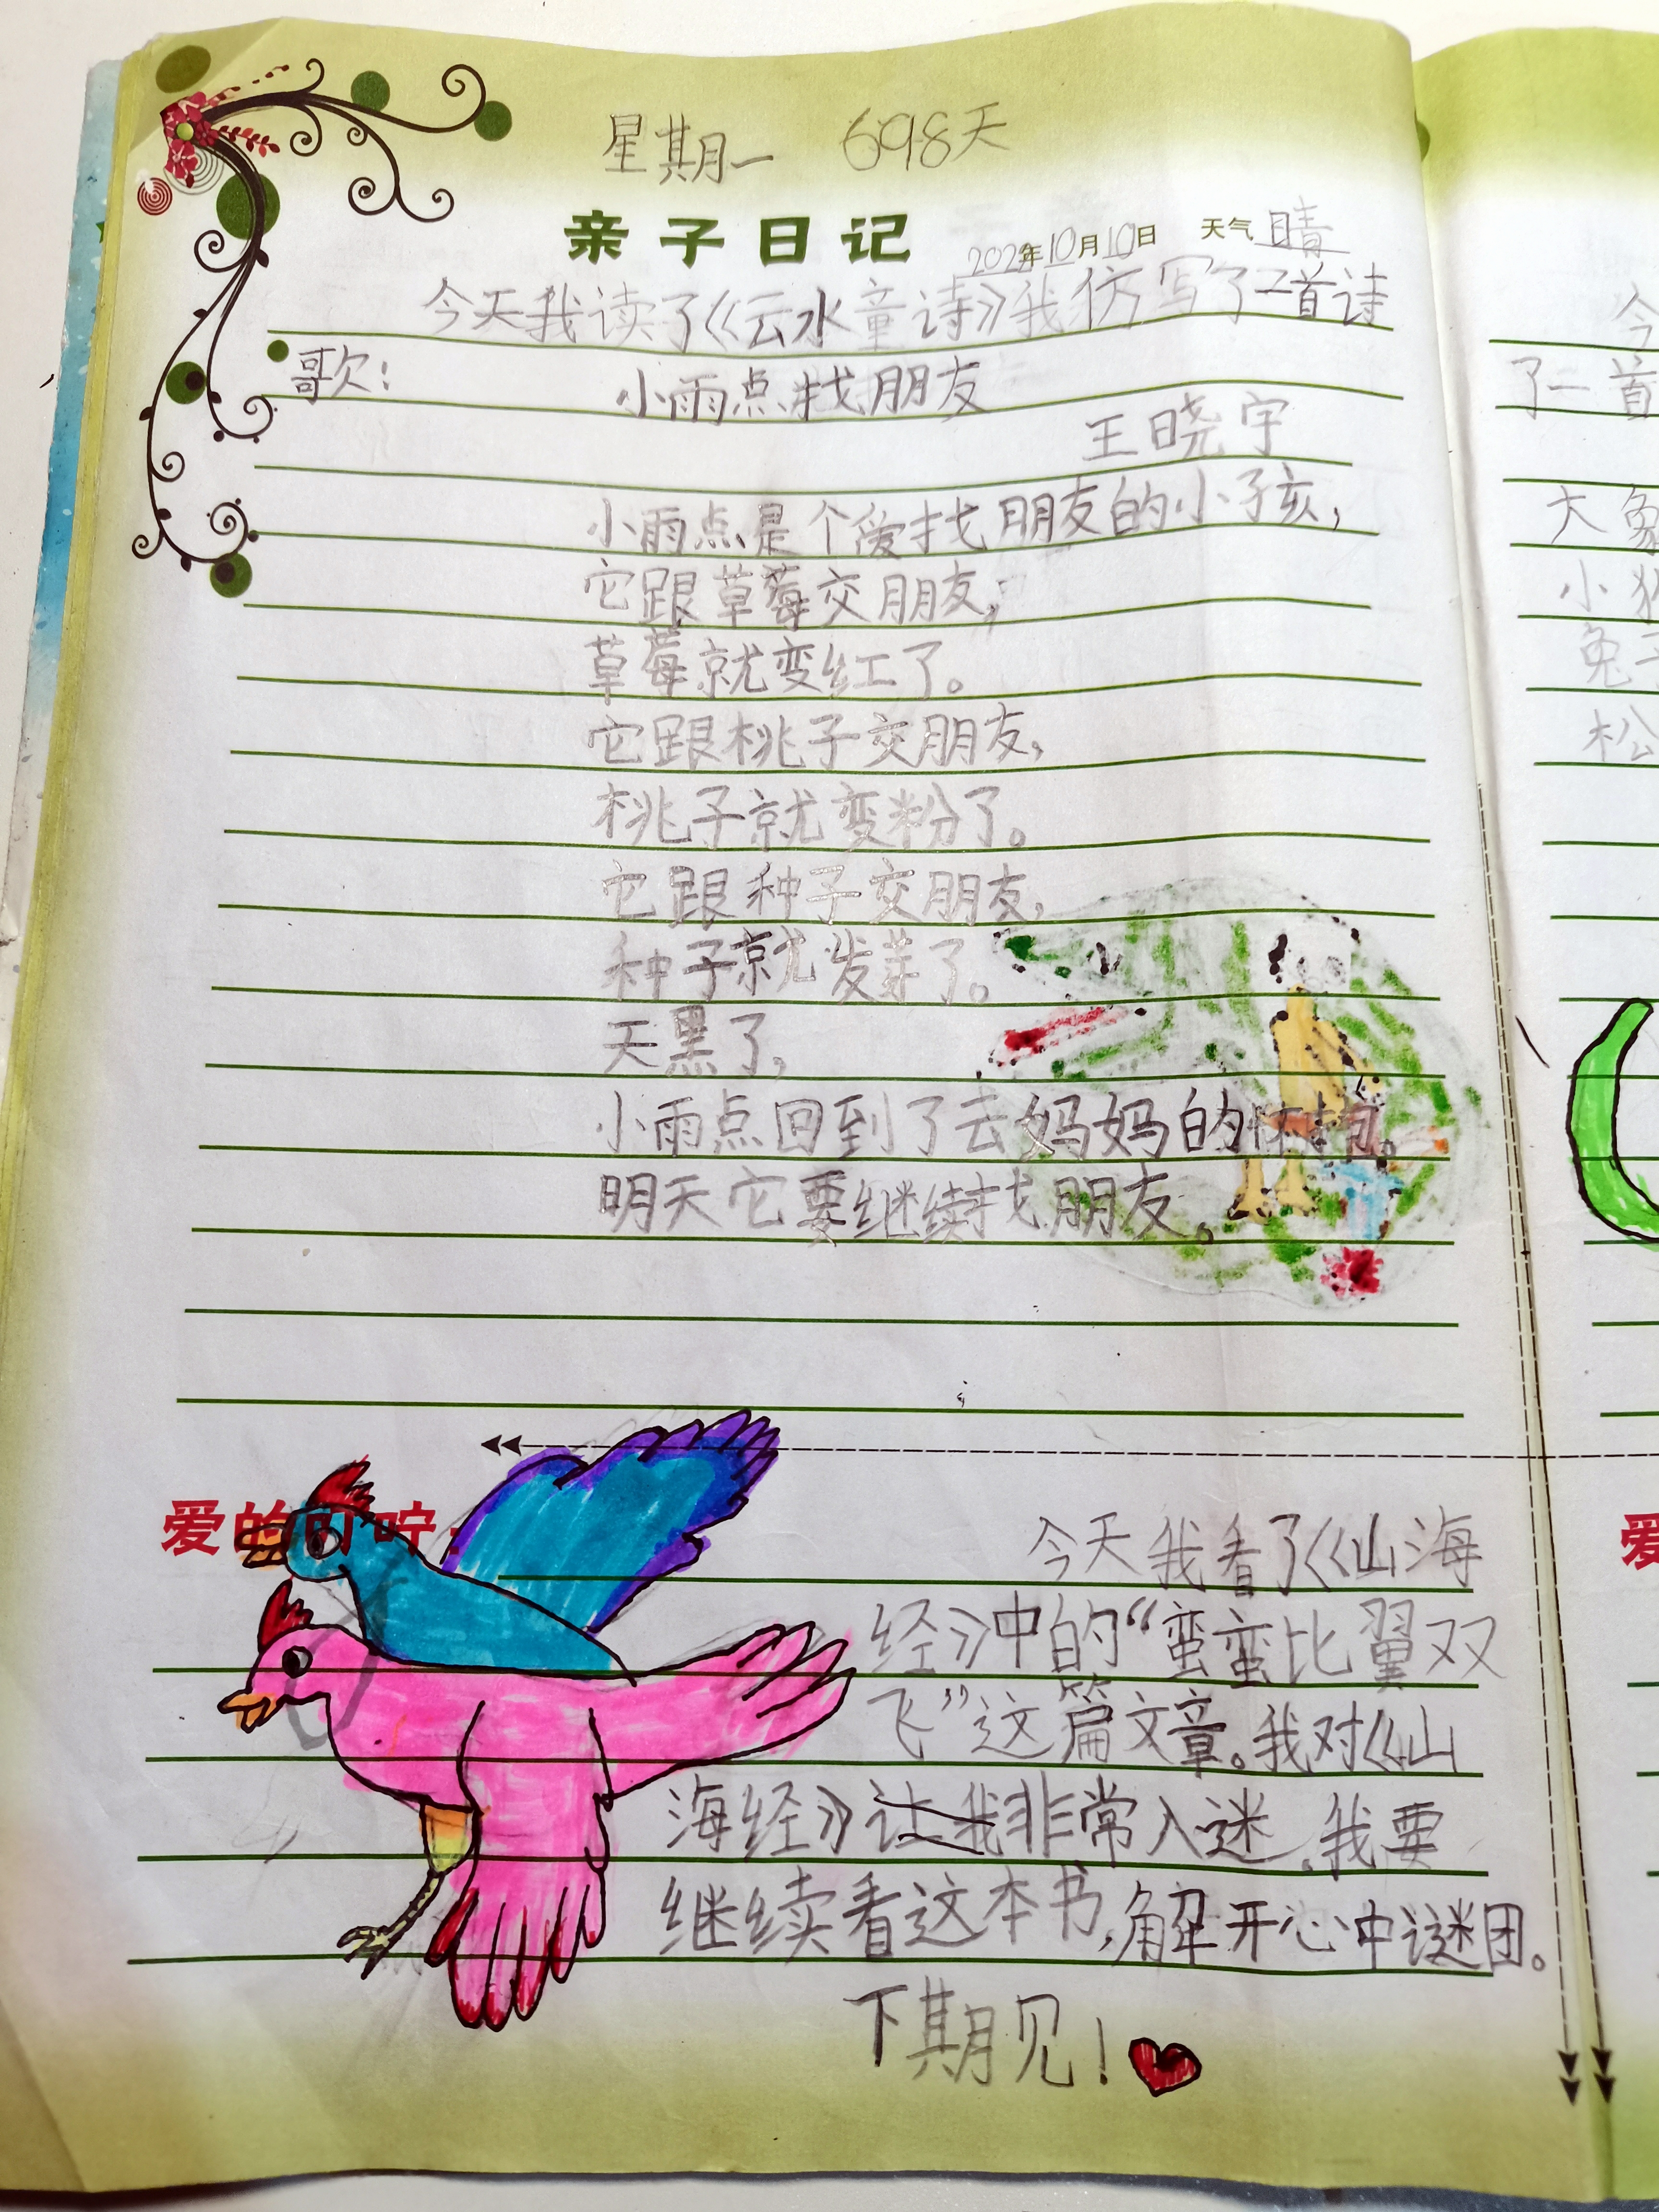 星期一 698天
亲子日记 2022年10月10日 天气 晴
今天我读了《云水童诗》我仿写了一首诗
歌：
小雨点找朋友
王晓宇
小雨点是个爱找朋友的小孩，
它跟草莓交朋友，
草莓就变红了。
它跟桃子交朋友，
桃子就变粉了。
它跟种子交朋友，
种子就发芽了。
天黑了，
小雨点回到了云妈妈的怀抱。
明天它要继续找朋友。
爱的叮咛：
今天我看了《山海
经》中的“蛮蛮比翼双
飞”这篇文章。我对《山
海经》让我非常入迷。我要
继续看这本书，解开心中谜团。
下期见！
今
了一首
大象
小
兔子
松
爱